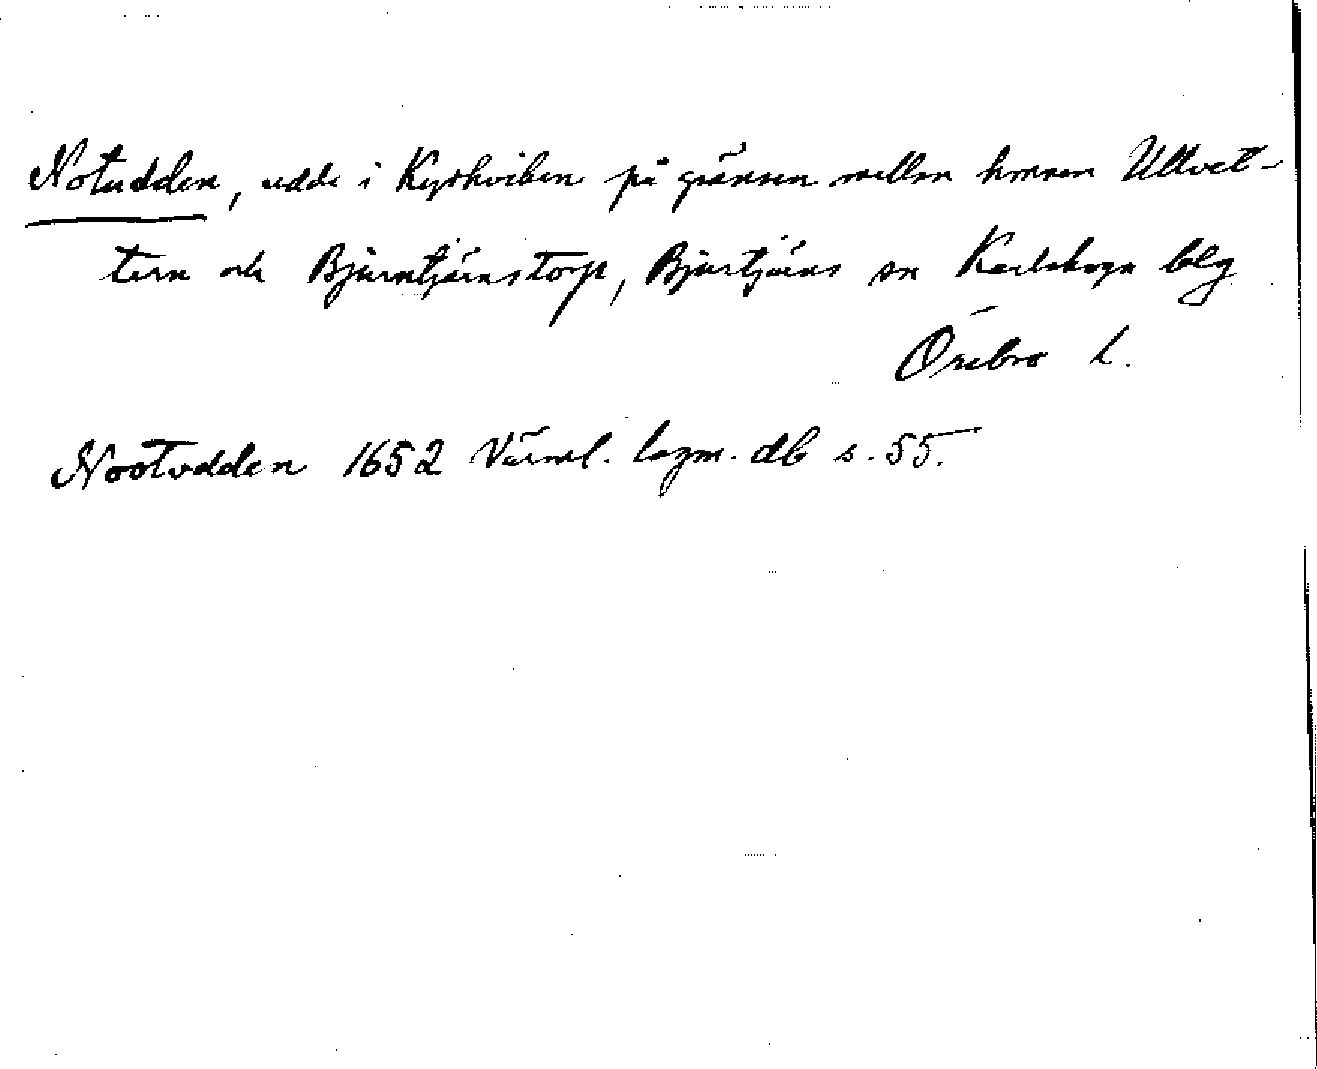 Notudden, udde i Kyrkviken på gränsen mellan hmnen Ullvet-
tern och Bjurntjärnstorp, Bjurtjärns sn Karlskoga blg
Örebro l.
Nootudden 1652 Värml. lagm. db s. 55.